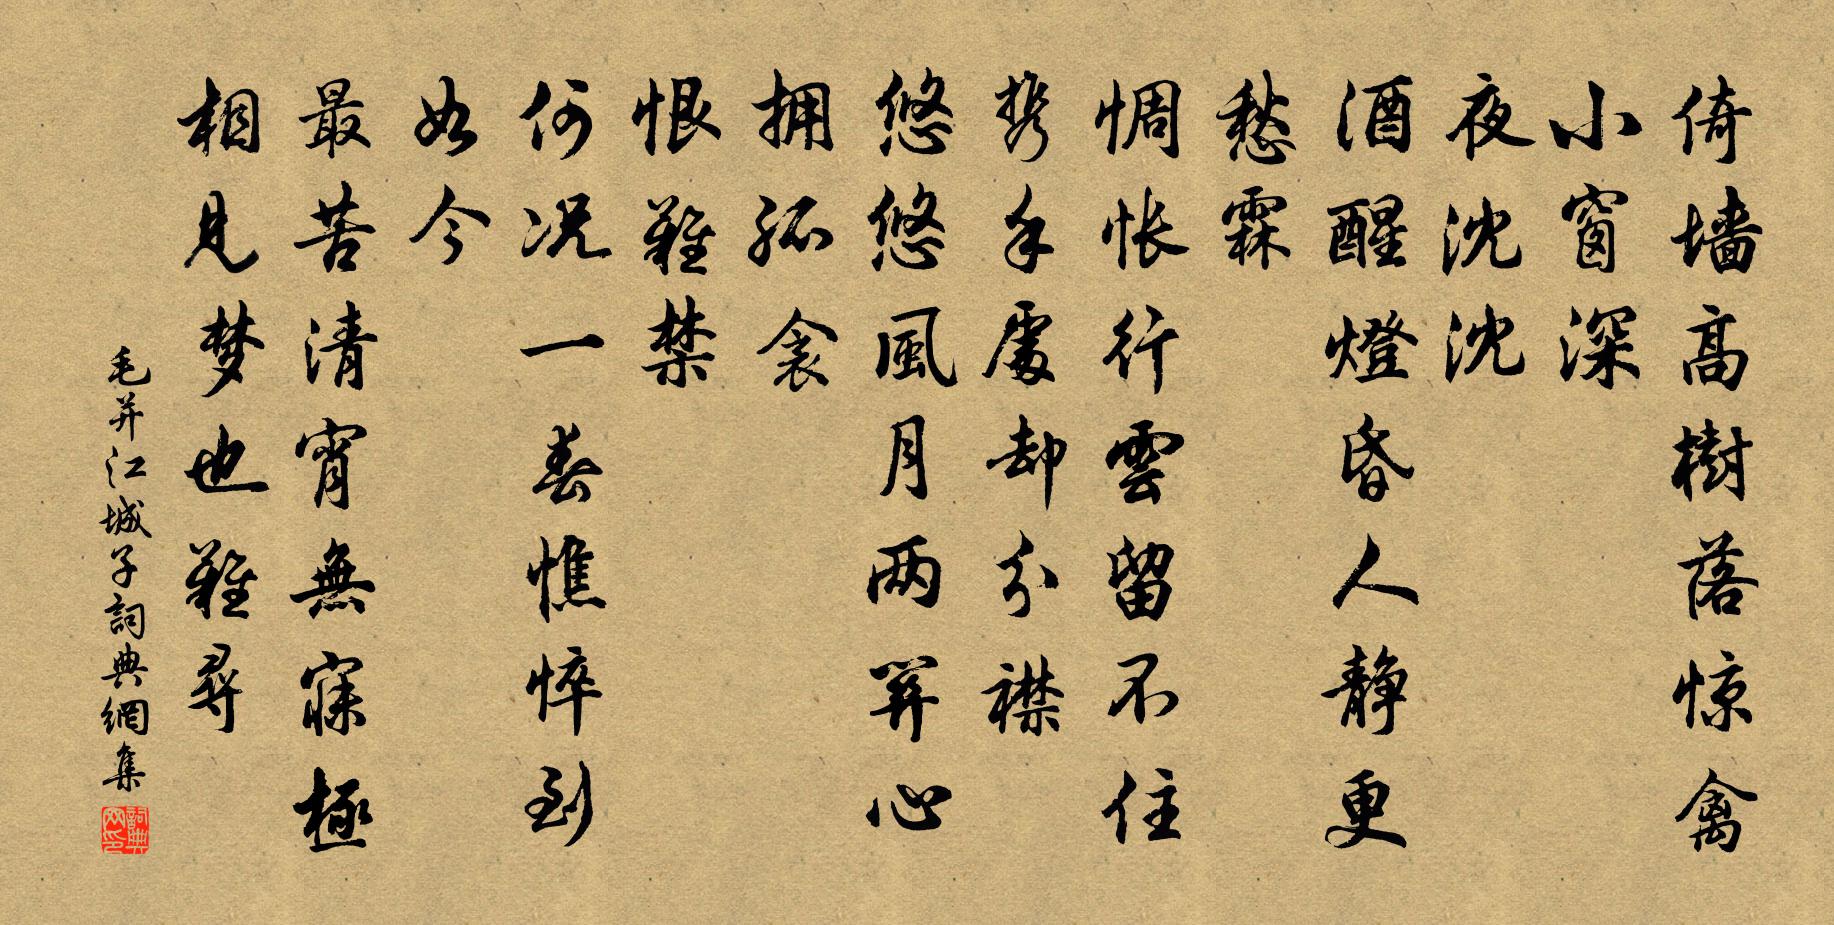 倚墙高樹落惊禽
小窗深
夜沈沈
酒醒燈昏人靜更
愁霖
惆怅行雲留不住
携手處却分襟
悠悠風月两関心
拥孤衾
恨難禁
何况一春憔悴到
如今
最苦清宵無寐極
相見梦也難尋
毛并江城子詞典網集
詞典网印